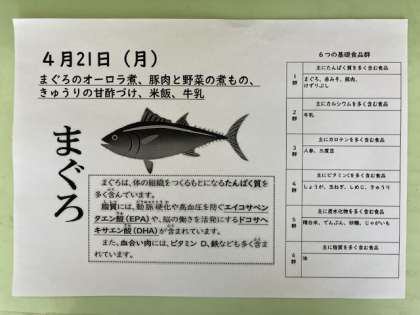 4月21日（月）
まぐろのオーロラ煮、豚肉と野菜の煮もの、
きゅうりの甘酢づけ、米飯、牛乳
まぐろ
まぐろは、体の組織をつくるもとになるたんぱく質を
多く含んでいます。
脂質には、動脈硬化や高血圧を防ぐエイコサペン
タエン酸（EPA）や、脳の働きを活発にするドコサヘ
キサエン酸（DHA）が含まれています。
また、血合い肉には、ビタミン D、鉄なども多く含ま
れています。
6つの基礎食品群
1群
主にたんぱく質を多く含む食品
まぐろ、赤みそ、豚肉、
けずりぶし
2群
主にカルシウムを多く含む食品
牛乳
3群
主にカロテンを多く含む食品
人参、三度豆
4群
主にビタミンCを多く含む食品
しょうが、玉ねぎ、しめじ、きゅうり
5群
主に炭水化物を多く含む食品
精白米、でんぷん、砂糖、じゃがいも
6群
主に脂質を多く含む食品
油